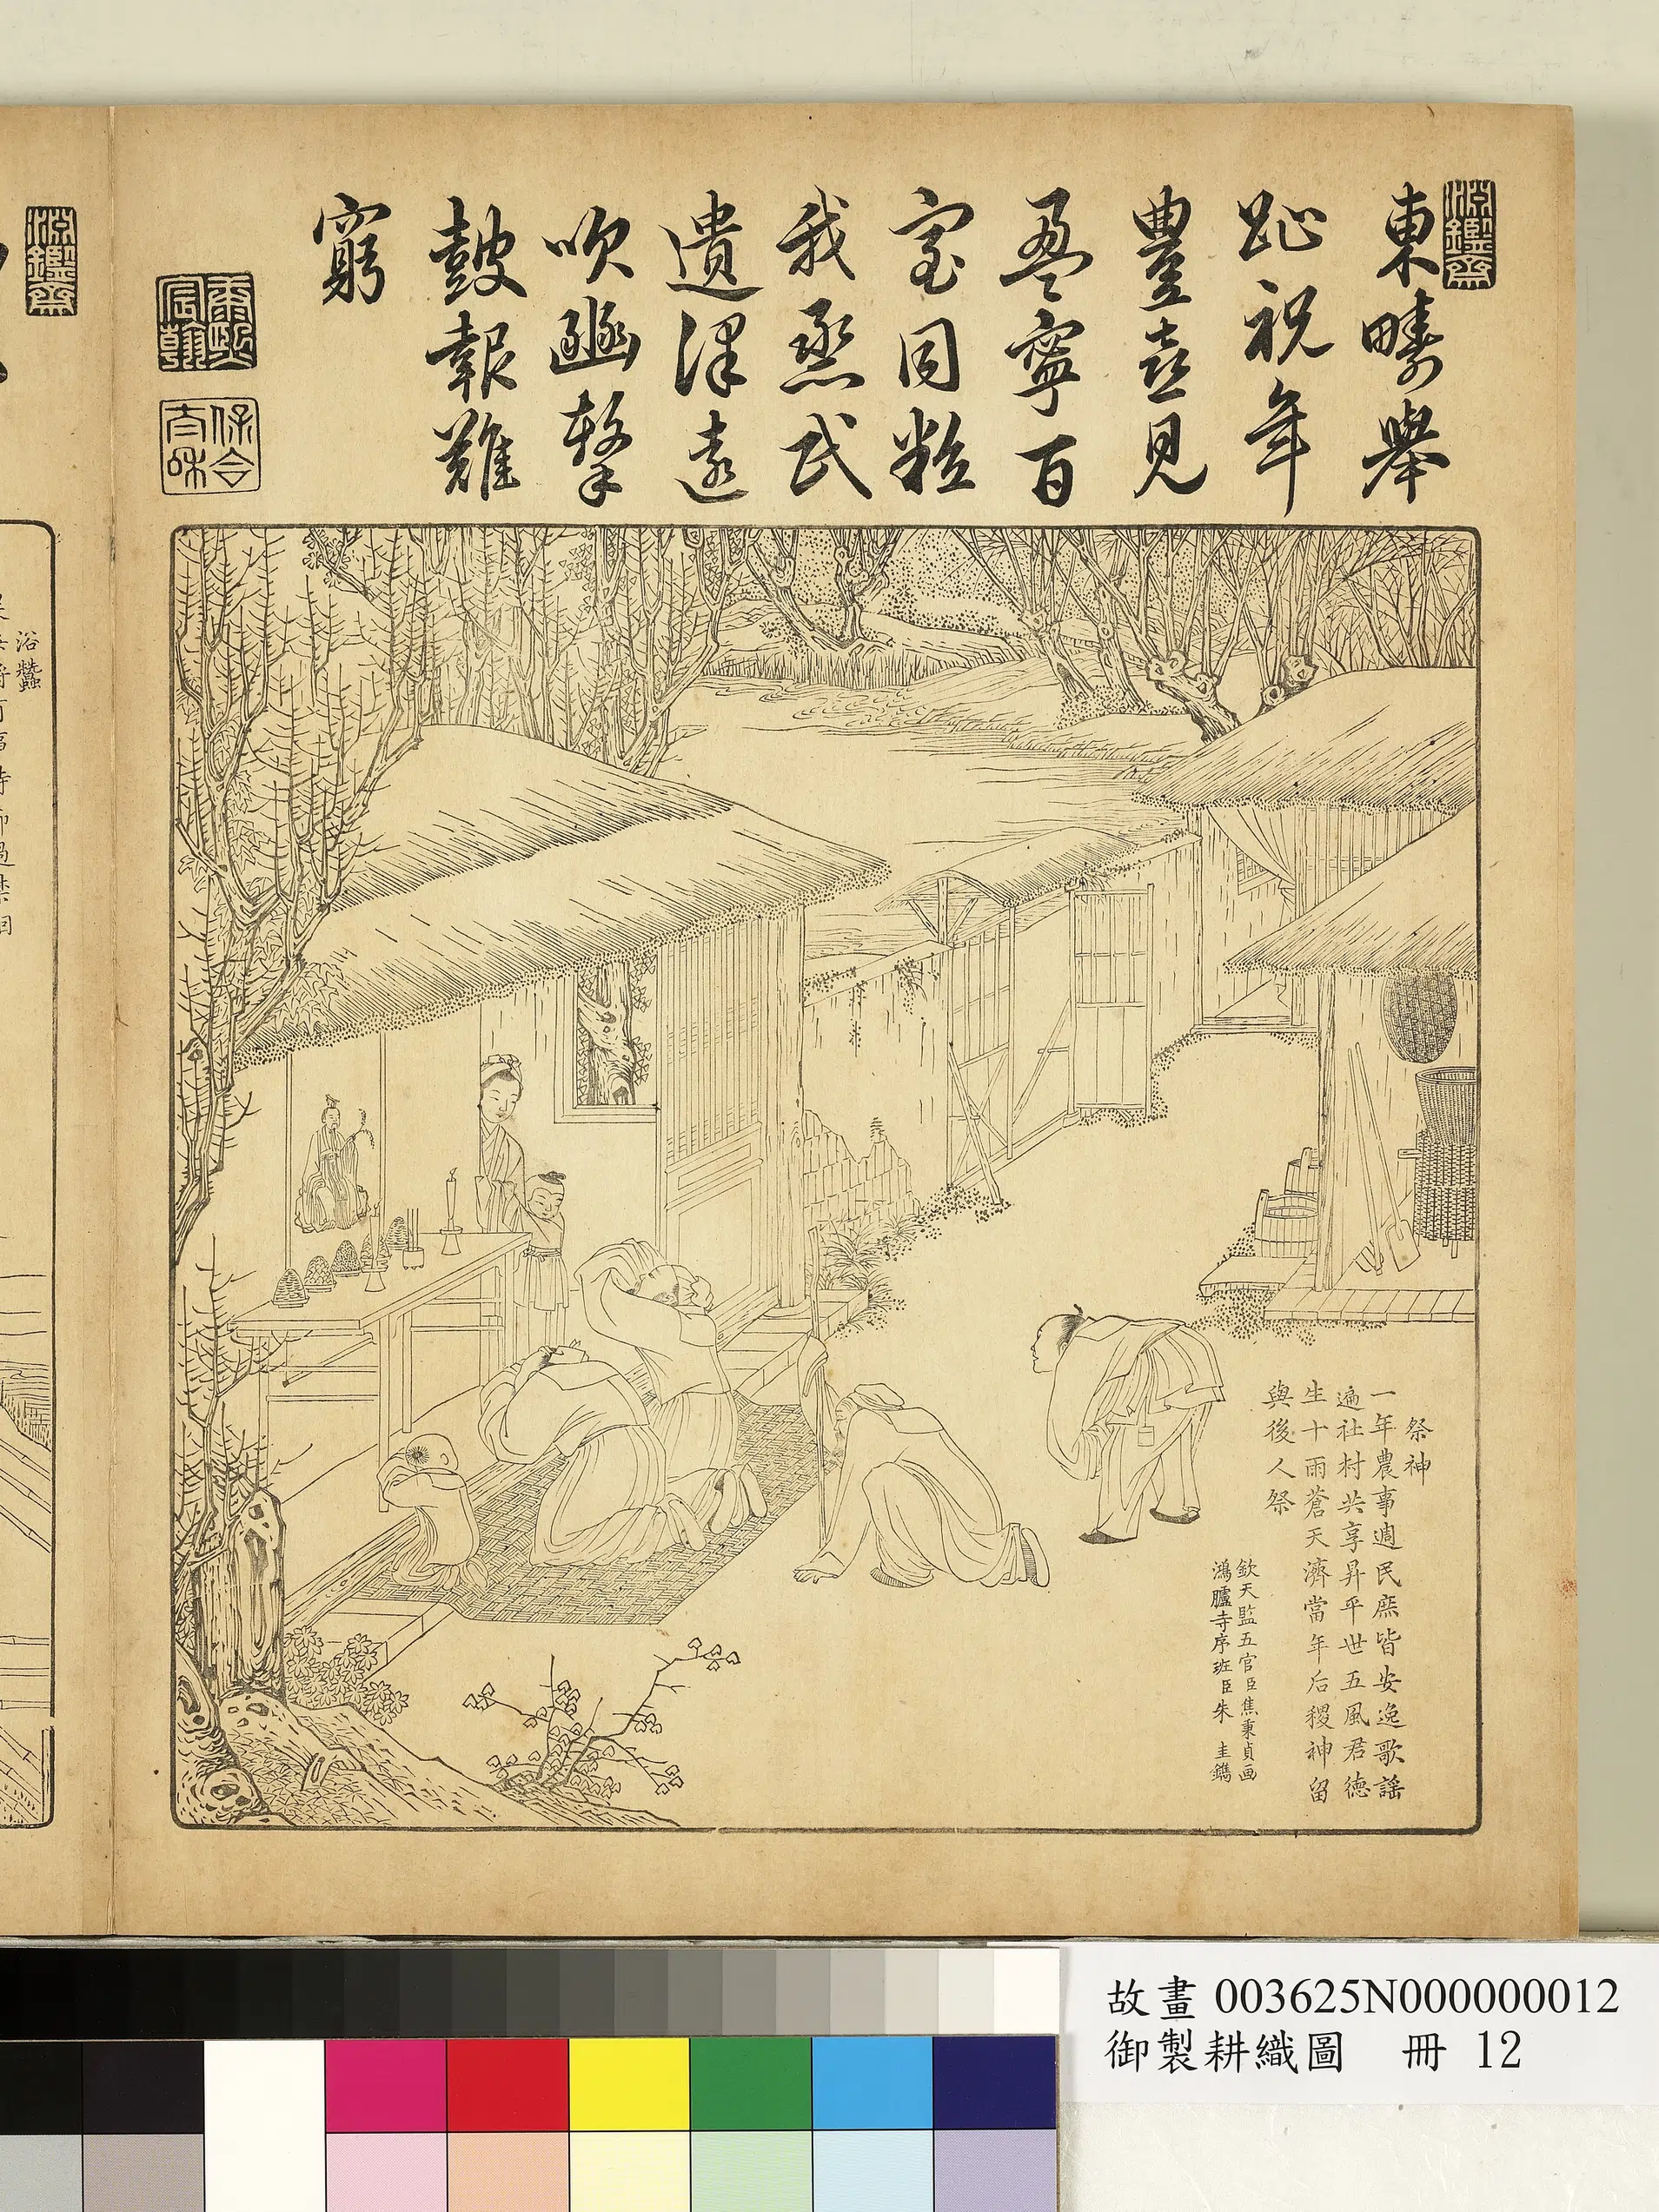 淵鑒齋
東疇舉
趾祝年
豐喜見
盈寧百
室同粒
我烝民
遺澤遠
吹豳擊
鼓報難
窮
康熙宸翰
保合太和
祭神
一年農事週民庶皆安逸歌謠
遍社村共享昇平世五風君德
生十雨蒼天濟當年后稷神留
與後人祭
欽天監五官臣焦秉貞画
鴻臚寺序班臣朱圭鐫
淵鑒齋
浴蠶
故畫 003625N000000012
御製耕織圖 冊 12